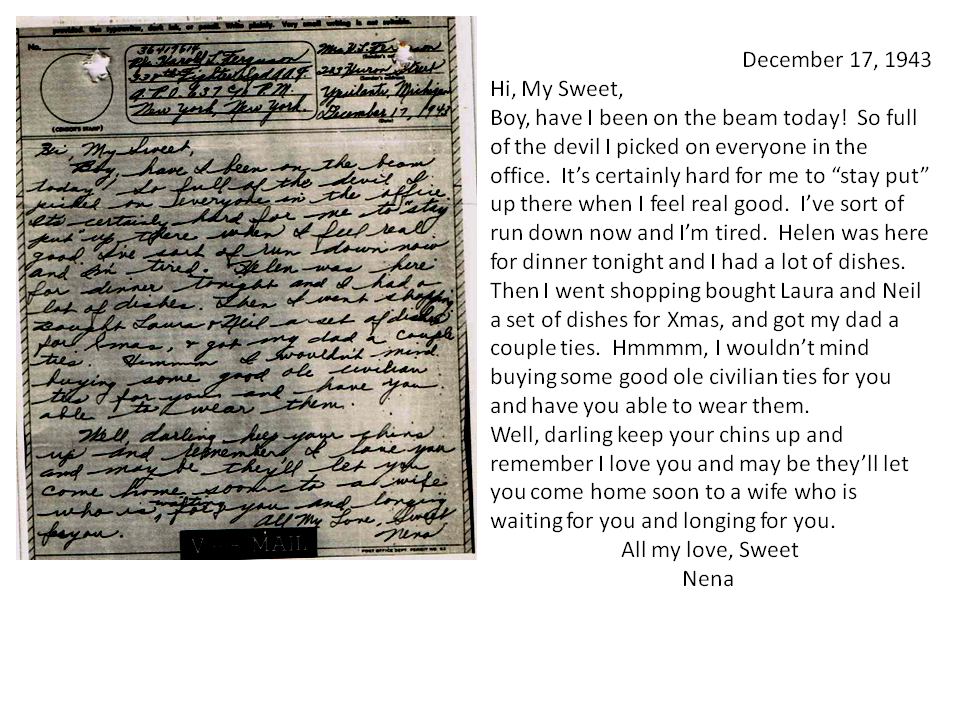 provided. Use typewriter, dark ink, or pencil. Write plainly. Very small writing is not suitable.
No.
(CENSOR'S STAMP)
36419614
Pfc Harold L. Ferguson
328th Fighter Sqd A.A.F.
A.P.O. 637 c/o P.M.
New York, New York.
Mrs H.L. Ferguson
203 Huron Street
Ypsilanti, Michigan
December 17, 1943
Hi, My Sweet,
Boy, have I been on the beam
today! So full of the devil I
picked on everyone in the office.
Its certainly hard for me to "stay
put" up there when I feel real
good. I've sort of run down now
and I'm tired. Helen was here
for dinner tonight and I had a
lot of dishes. Then I went shopping
bought Laura & Neil a set of dishes
for Xmas, & got my dad a couple
ties. Hmmmm I wouldn't mind
buying some good ole civilian
ties for you and have you
able to wear them.
Well, darling keep your chins
up and remember I love you
and may be they'll let you
come home soon to a wife
who is waiting for you and longing
for you. All My Love, Sweet
Nena
V···-MAIL
POST OFFICE DEPT. PERMIT NO.
December 17, 1943
Hi, My Sweet,
Boy, have I been on the beam today! So full
of the devil I picked on everyone in the
office. It's certainly hard for me to “stay put”
up there when I feel real good. I've sort of
run down now and I'm tired. Helen was here
for dinner tonight and I had a lot of dishes.
Then I went shopping bought Laura and Neil
a set of dishes for Xmas, and got my dad a
couple ties. Hmmmm, I wouldn't mind
buying some good ole civilian ties for you
and have you able to wear them.
Well, darling keep your chins up and
remember I love you and may be they'll let
you come home soon to a wife who is
waiting for you and longing for you.
All my love, Sweet
Nena